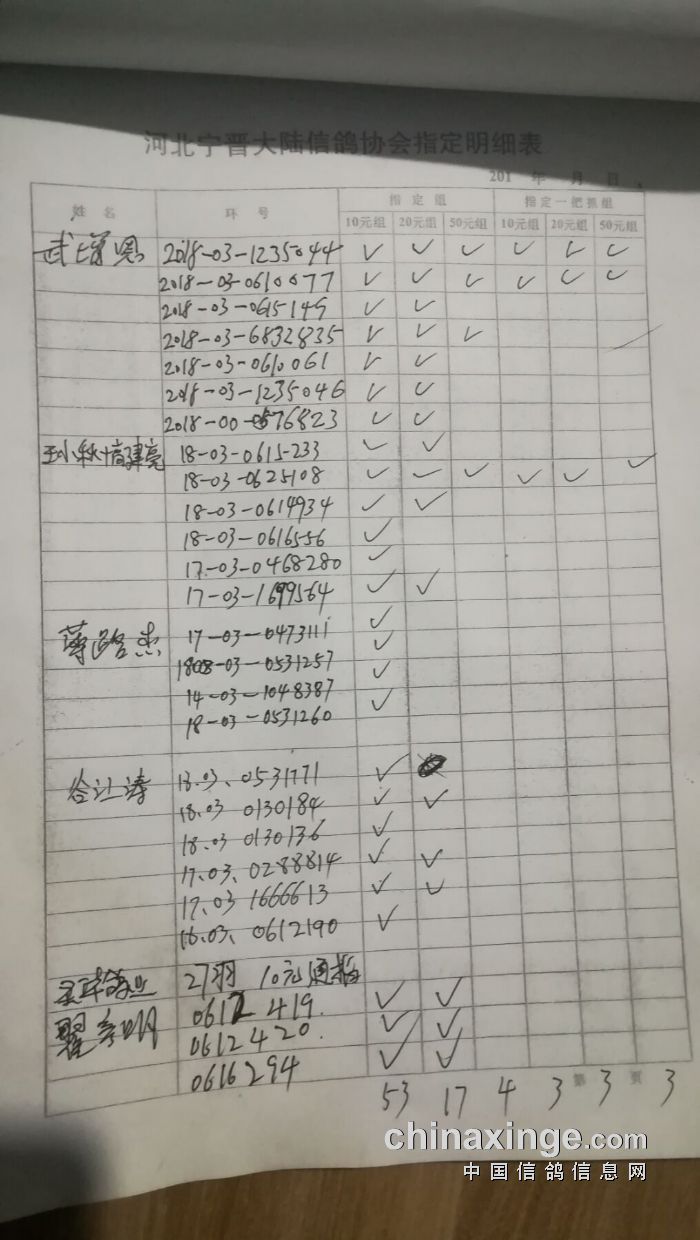 河北宁晋大陆信鸽协会指定明细表
201 年 月 日
姓 名 环 号 指 定 组 指定一把抓组
10元组 20元组 50元组 10元组 20元组 50元组
武增恩 2018-03-1235044 ✓ ✓ ✓ ✓ ✓ ✓
2018-03-0610077 ✓ ✓ ✓ ✓ ✓ ✓
2018-03-0615149 ✓ ✓
2018-03-6832835 ✓ ✓ ✓
2018-03-0610061 ✓ ✓
2018-03-1235046 ✓ ✓
2018-00-0576823 ✓ ✓
18-03-0615233 ✓ ✓
18-03-0625108 ✓ ✓ ✓ ✓ ✓ ✓
18-03-0614934 ✓ ✓
18-03-0616556 ✓
17-03-0468280 ✓
17-03-1699564 ✓ ✓
路杰 17-03-0473111 ✓
1808-03-0531257 ✓
14-03-1048387 ✓
18-03-0531260 ✓
谷让涛 18.03、0531771 ✓
18.03 0130184 ✓ ✓
18.03 0130136 ✓
17.03、0288814 ✓ ✓
17.03 1666613 ✓ ✓
16.03、0612190 ✓
27羽 10元通指
0612 419. ✓ ✓
0612420. ✓ ✓
0616294 ✓ ✓
53 17 4 3 第 3 页 3
chinaxinge.com
中国信鸽信息网